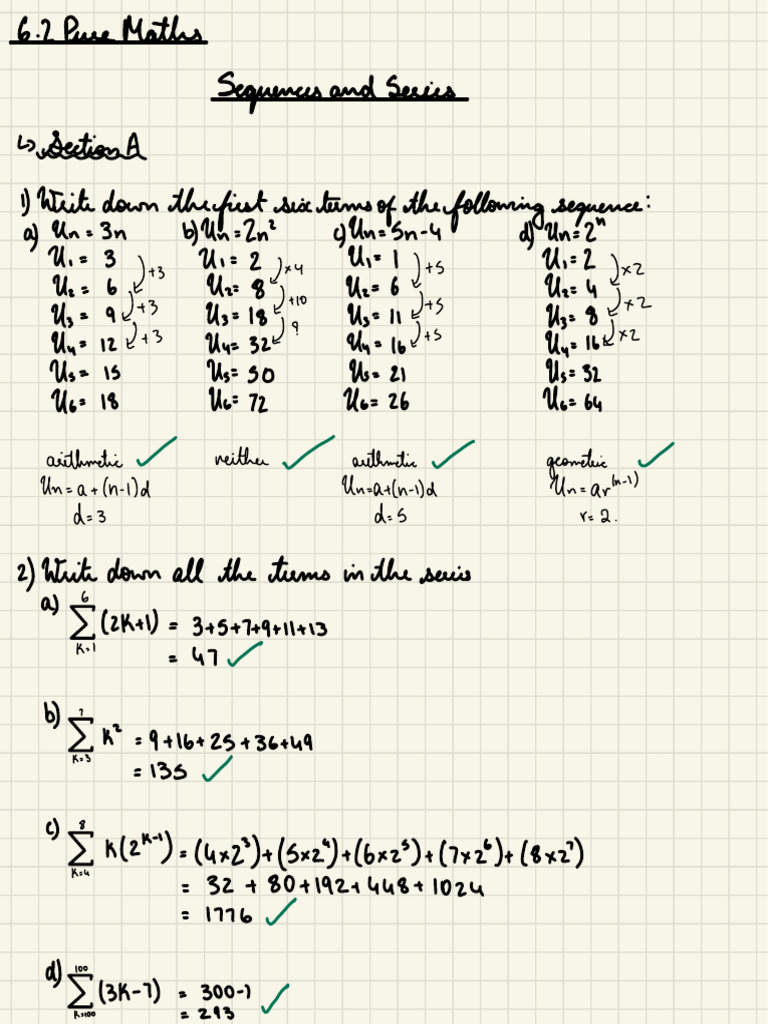 6.2 Pure Maths
Sequences and Series
↳ Section A
1) Write down the first six terms of the following sequence:
a) Un = 3n
U₁ = 3
U₂ = 6
U₃ = 9
U₄ = 12
U₅ = 15
U₆ = 18
+3
+3
+3
arithmetic ✓
Un = a + (n-1)d
d = 3
b) Un = 2n²
U₁ = 2
U₂ = 8
U₃ = 18
U₄ = 32
U₅ = 50
U₆ = 72
×4
+10
?
neither ✓
c) Un = 5n-4
U₁ = 1
U₂ = 6
U₃ = 11
U₄ = 16
U₅ = 21
U₆ = 26
+5
+5
+5
arithmetic ✓
Un = a+(n-1)d
d = 5
d) Un = 2ⁿ
U₁ = 2
U₂ = 4
U₃ = 8
U₄ = 16
U₅ = 32
U₆ = 64
×2
×2
×2
geometric ✓
Un = ar⁽ⁿ⁻¹⁾
r = 2.
2) Write down all the terms in the series
a) 6 ∑ K=1 (2K+1) = 3+5+7+9+11+13
= 47 ✓
b) 7 ∑ K=3 K² = 9+16+25+36+49
= 135 ✓
c) 8 ∑ K=4 K(2ᴷ⁻¹) = (4×2³)+(5×2⁴)+(6×2⁵)+(7×2⁶)+(8×2⁷)
= 32 + 80+192+448+1024
= 1776 ✓
d) 100 ∑ K=100 (3K-7) = 300-7
= 293 ✓